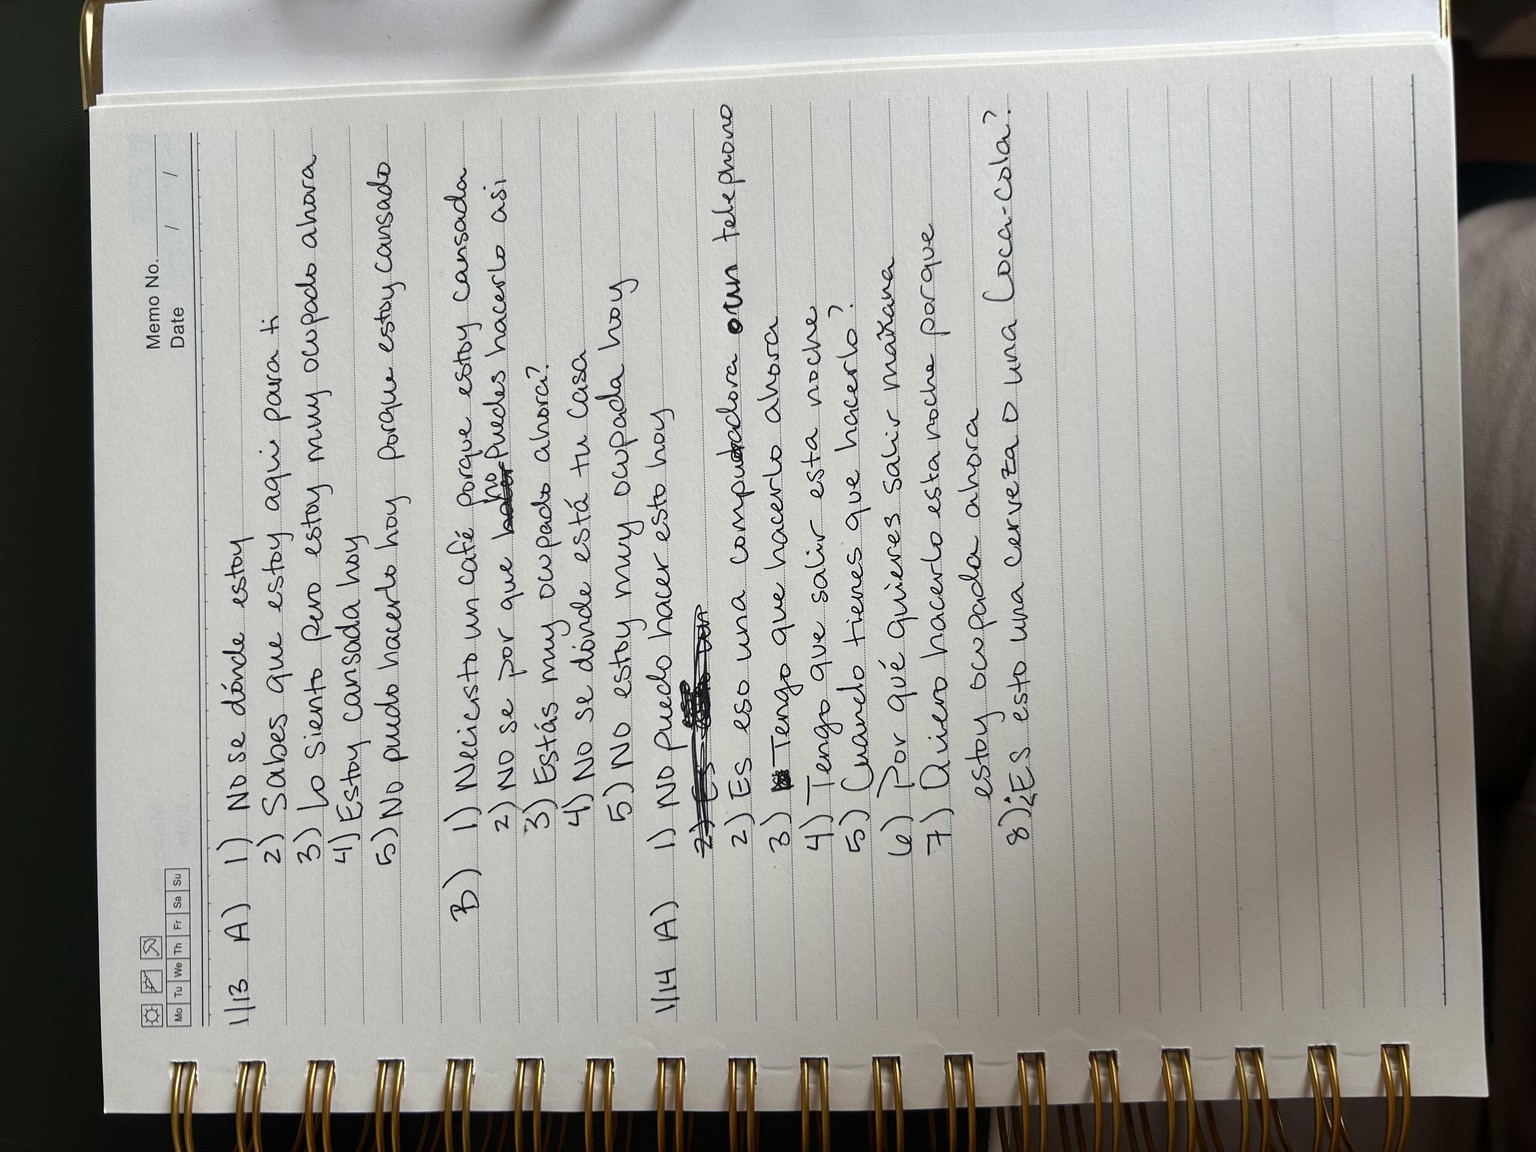 Memo No.
Mo Tu We Th Fr Sa Su
Date / /
1/13 A) 1) No se dónde estoy
2) Sabes que estoy aqui para ti
3) Lo siento pero estoy muy ocupado ahora
4) Estoy cansada hoy
5) No puedo hacerlo hoy porque estoy cansado
B) 1) Necicisto un café porque estoy cansada
2) No se por que no puedes hacerlo asi
3) Estás muy ocupado ahora?
4) No se dónde está tu casa
5) No estoy muy ocupada hoy
1/14 A) 1) No puedo hacer esto hoy
2) Es
2) Es eso una computadora o un telephono
3) Tengo que hacerlo ahora
4) Tengo que salir esta noche
5) Cuando tienes que hacerlo?
6) Por qué quieres salir mañana
7) Quiero hacerlo esta noche porque
estoy ocupada ahora
8) ¿Es esto una cerveza o una Coca-Cola?